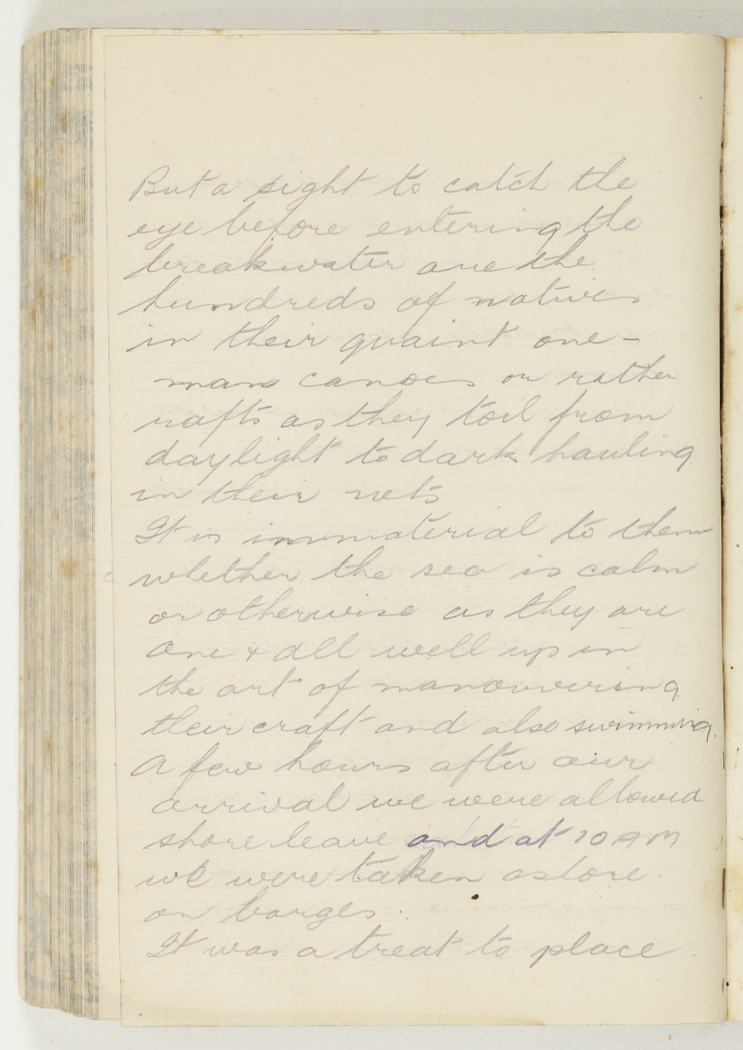 But a sight to catch the
eye before entering the
breakwater are the
hundreds of natives
in their quaint one-
man canoes or rather
rafts as they toil from
daylight to dark hauling
in their nets
It is immaterial to them
whether the sea is calm
or otherwise as they are
one & all well up in
the art of manouvering
their craft and also swimming.
A few hours after our
arrival we were allowed
shore leave and at 10 AM
we were taken ashore.
on barges.
It was a treat to place